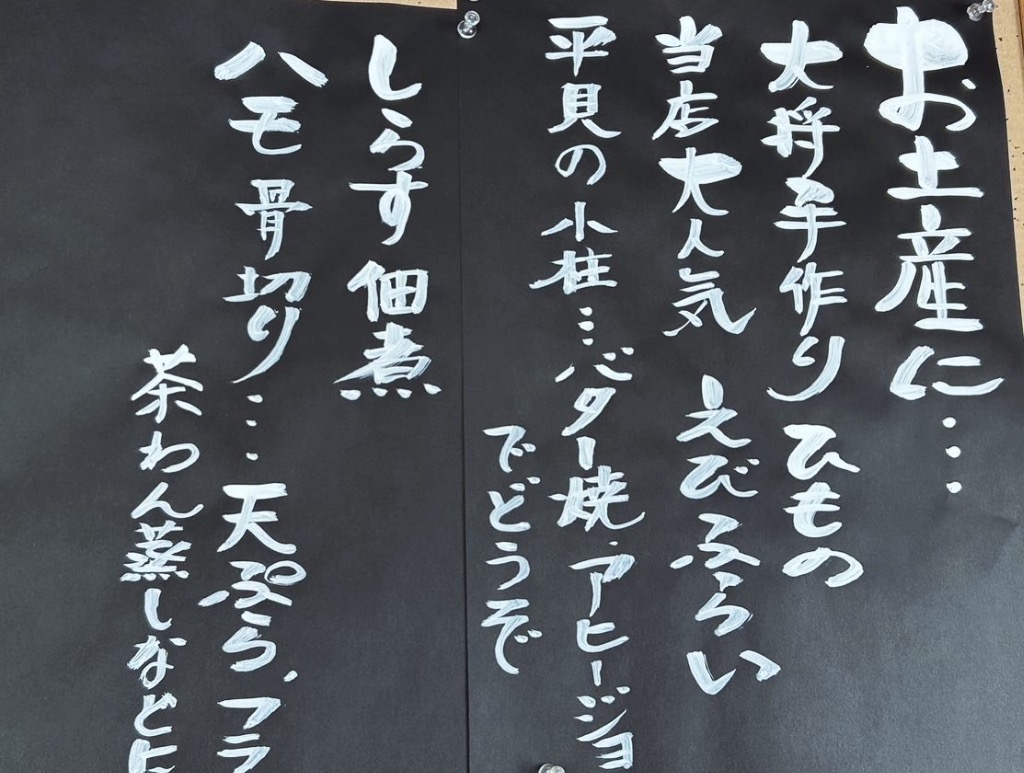 お土産に…
大将手作り ひもの
当店大人気 えびふらい
平貝の小柱…バター焼.アヒージョ
でどうぞ
しらす 佃煮
ハモ 骨切り… 天ぷら、フラ
茶わん蒸しなどに